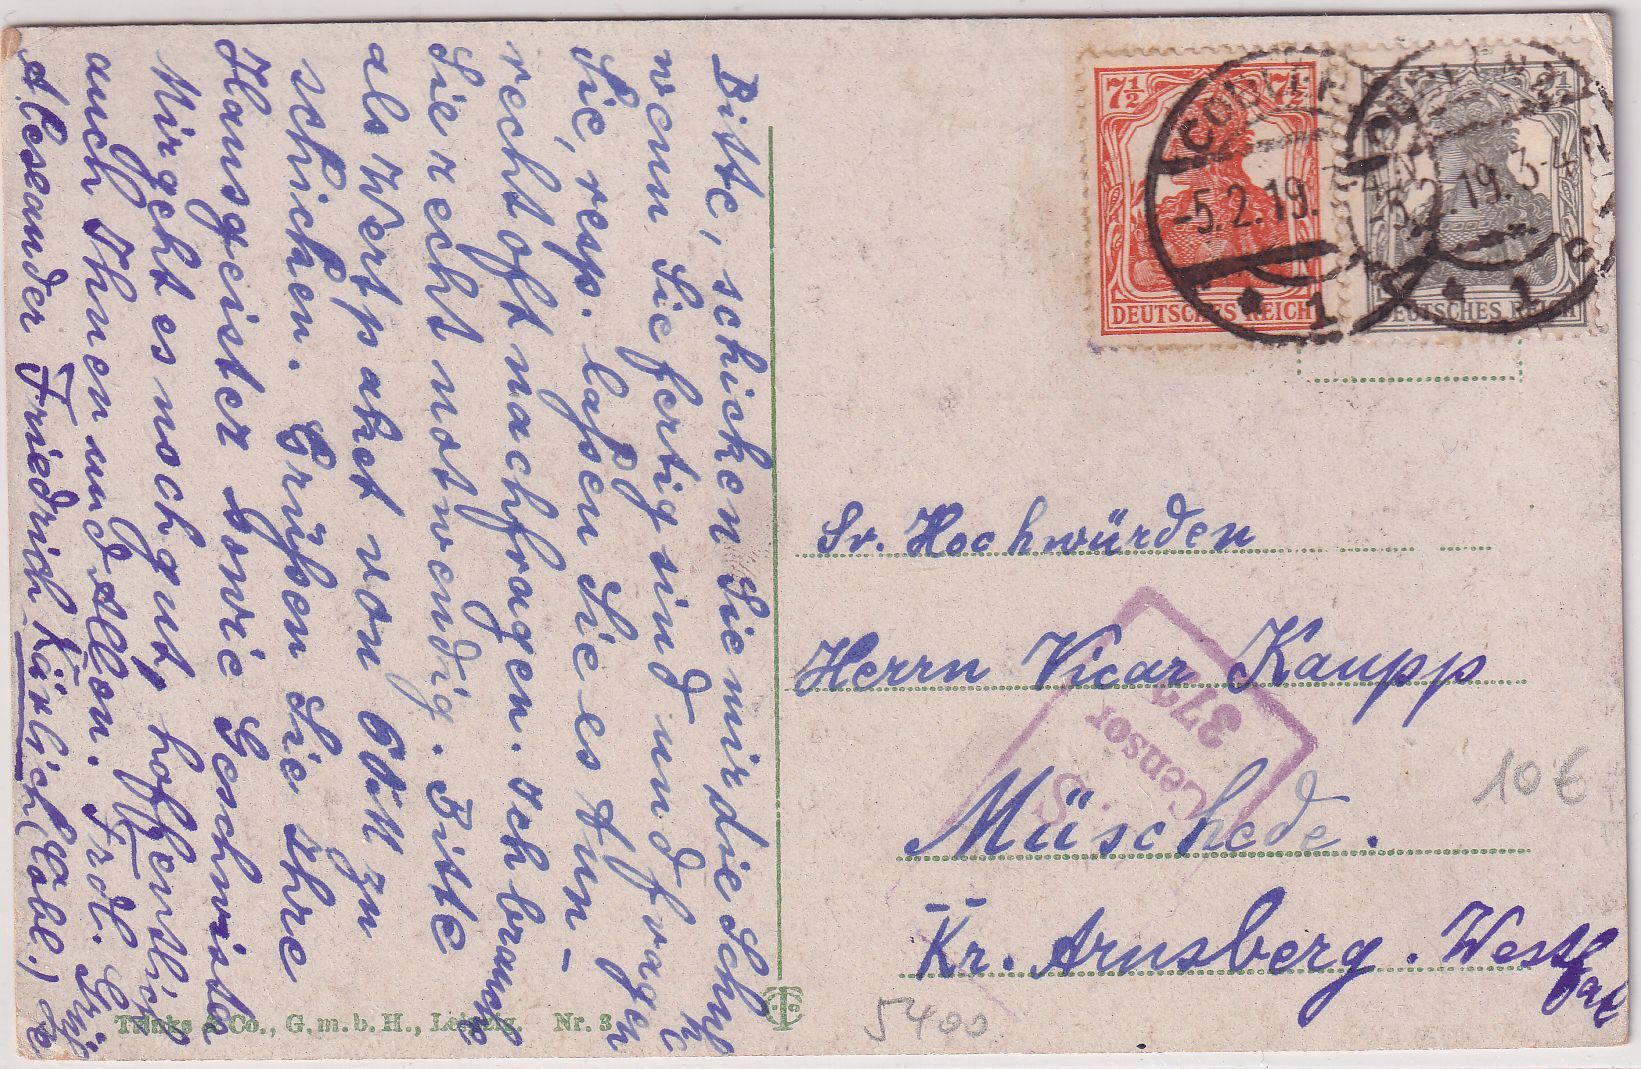 Bitte, schicken Sie mir die Schuhe
wenn Sie fertig sind und fragen
Sie, resp. laßen Sie es tun –
recht oft nachfragen. Ich brauche
Sie recht notwendig. Bitte
als Wertpaket von 60 M zu
schicken. Grüßen Sie Ihre
Hausgeister sowie Geschwister
Mir geht es noch gut, hoffentlich
auch Ihnen und Allen. Frdl. Gruß
Alexander Friedrich Kärlich (Cobl.)
7½ 7½
DEUTSCHES REICH
COBLENZ
-5.2.19.
* 1
2½
DEUTSCHES REICH
COBLENZ
-5.2.19. 3-4 N
* 1 c
Sr. Hochwürden
Herrn Vicar Kaupp
Müschede.
Kr. Arnsberg. Westfal
Censor
379
10 €
5400
Trinks & Co., G. m. b. H., Leipzig. Nr. 3